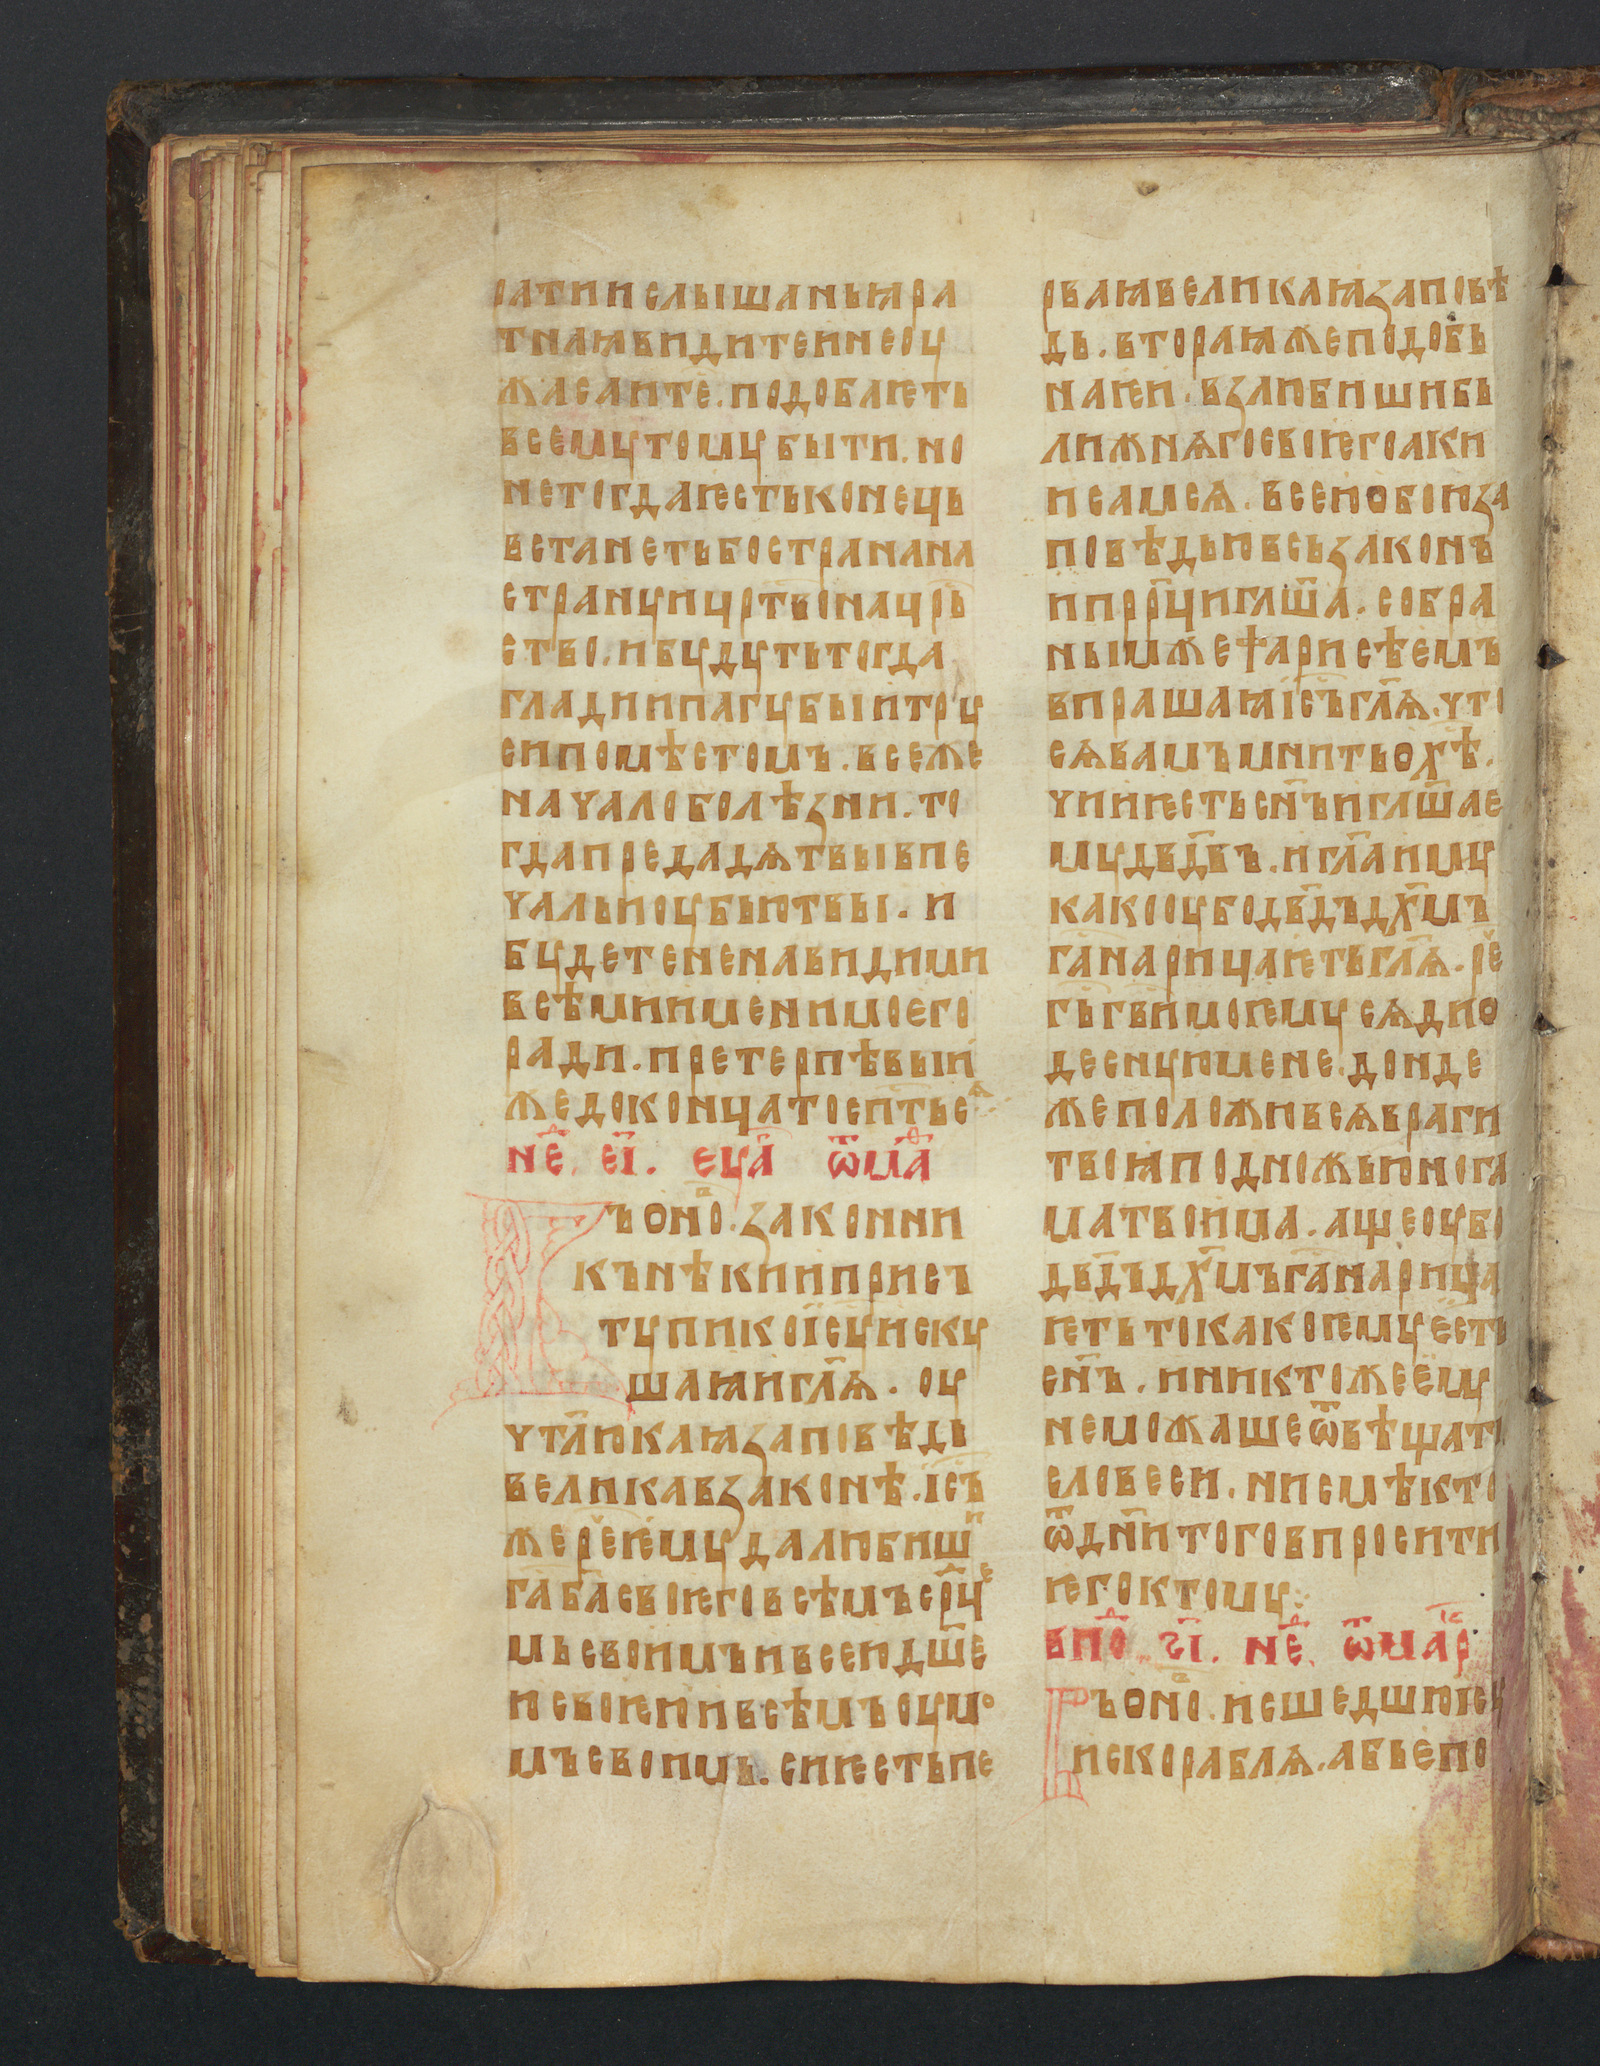 ратиислышаньꙗра
тнаꙗвидитеинеоу
жасаите. подобаѥть
всемутомубыти. но
нетогдаѥстьконець
встанетьбостранана
странуицр҃твонацр҃ь
ство. ибудутьтогда
гладиипагубыитру
сипомѣстомъ. всеже
началоболѣзни. то
гдапредадѧтвывпе
чальиоубьютвы. и
будетененавидими
всѣмиименимоего
ради. претерпѣвыи
жедоконцатосп҃тьсѧ
не҃. е҃і. еуа҃ ѿма҃
ъоно҃. законни
кънѣкиипристъ
тупикоі҃суиску
шаꙗигл҃ѧ. оу
чтл҃юкаꙗзаповѣдь
великавзаконѣ. і҃съ
жере҃ѥмудалюбиши
га҃ба҃своѥговсѣмъср҃це
мьсвоимъивсеюдш҃е
исвоѥюивсѣмъоумо
мъсвоимь. сиѥстьпе
рваꙗвеликаꙗзаповѣ
дь. втораꙗжеподобь
наѥи. взлюбишибь
лижнѧгосвоѥгоаки
исамсѧ. всеюобоиза
повѣдьювсьзаконъ
ипрр҃циглш҃а. собра
ныимжефарисѣемъ
впрашаꙗі҃съгл҃ѧ. что
сѧвамъмнитьох҃ѣ.
чииѥстьсн҃ъиглш҃ае
мудвд҃въ. игл҃аиму
какооубодвд҃ъдх҃мъ
га҃нарицаѥтьгл҃ѧ. ре҃
гь҃гв҃имоѥмусѧдио
деснуюмене. донде
жеположювсѧвраги
твоꙗподножьюнога
матвоима. ащеоубо
двд҃ъдх҃мъга҃нарица
ѥтьтокакоѥмуесть
сн҃ъ. иниктожеему
неможашеѿвѣщати
словеси. нисмѣкто
ѿдн҃итоговпросити
ѥгоктому
впо҃. ѕ҃і. не҃. ѿмар҃к
ъоно҃. исшедшюі҃су
искораблѧ. абьепо